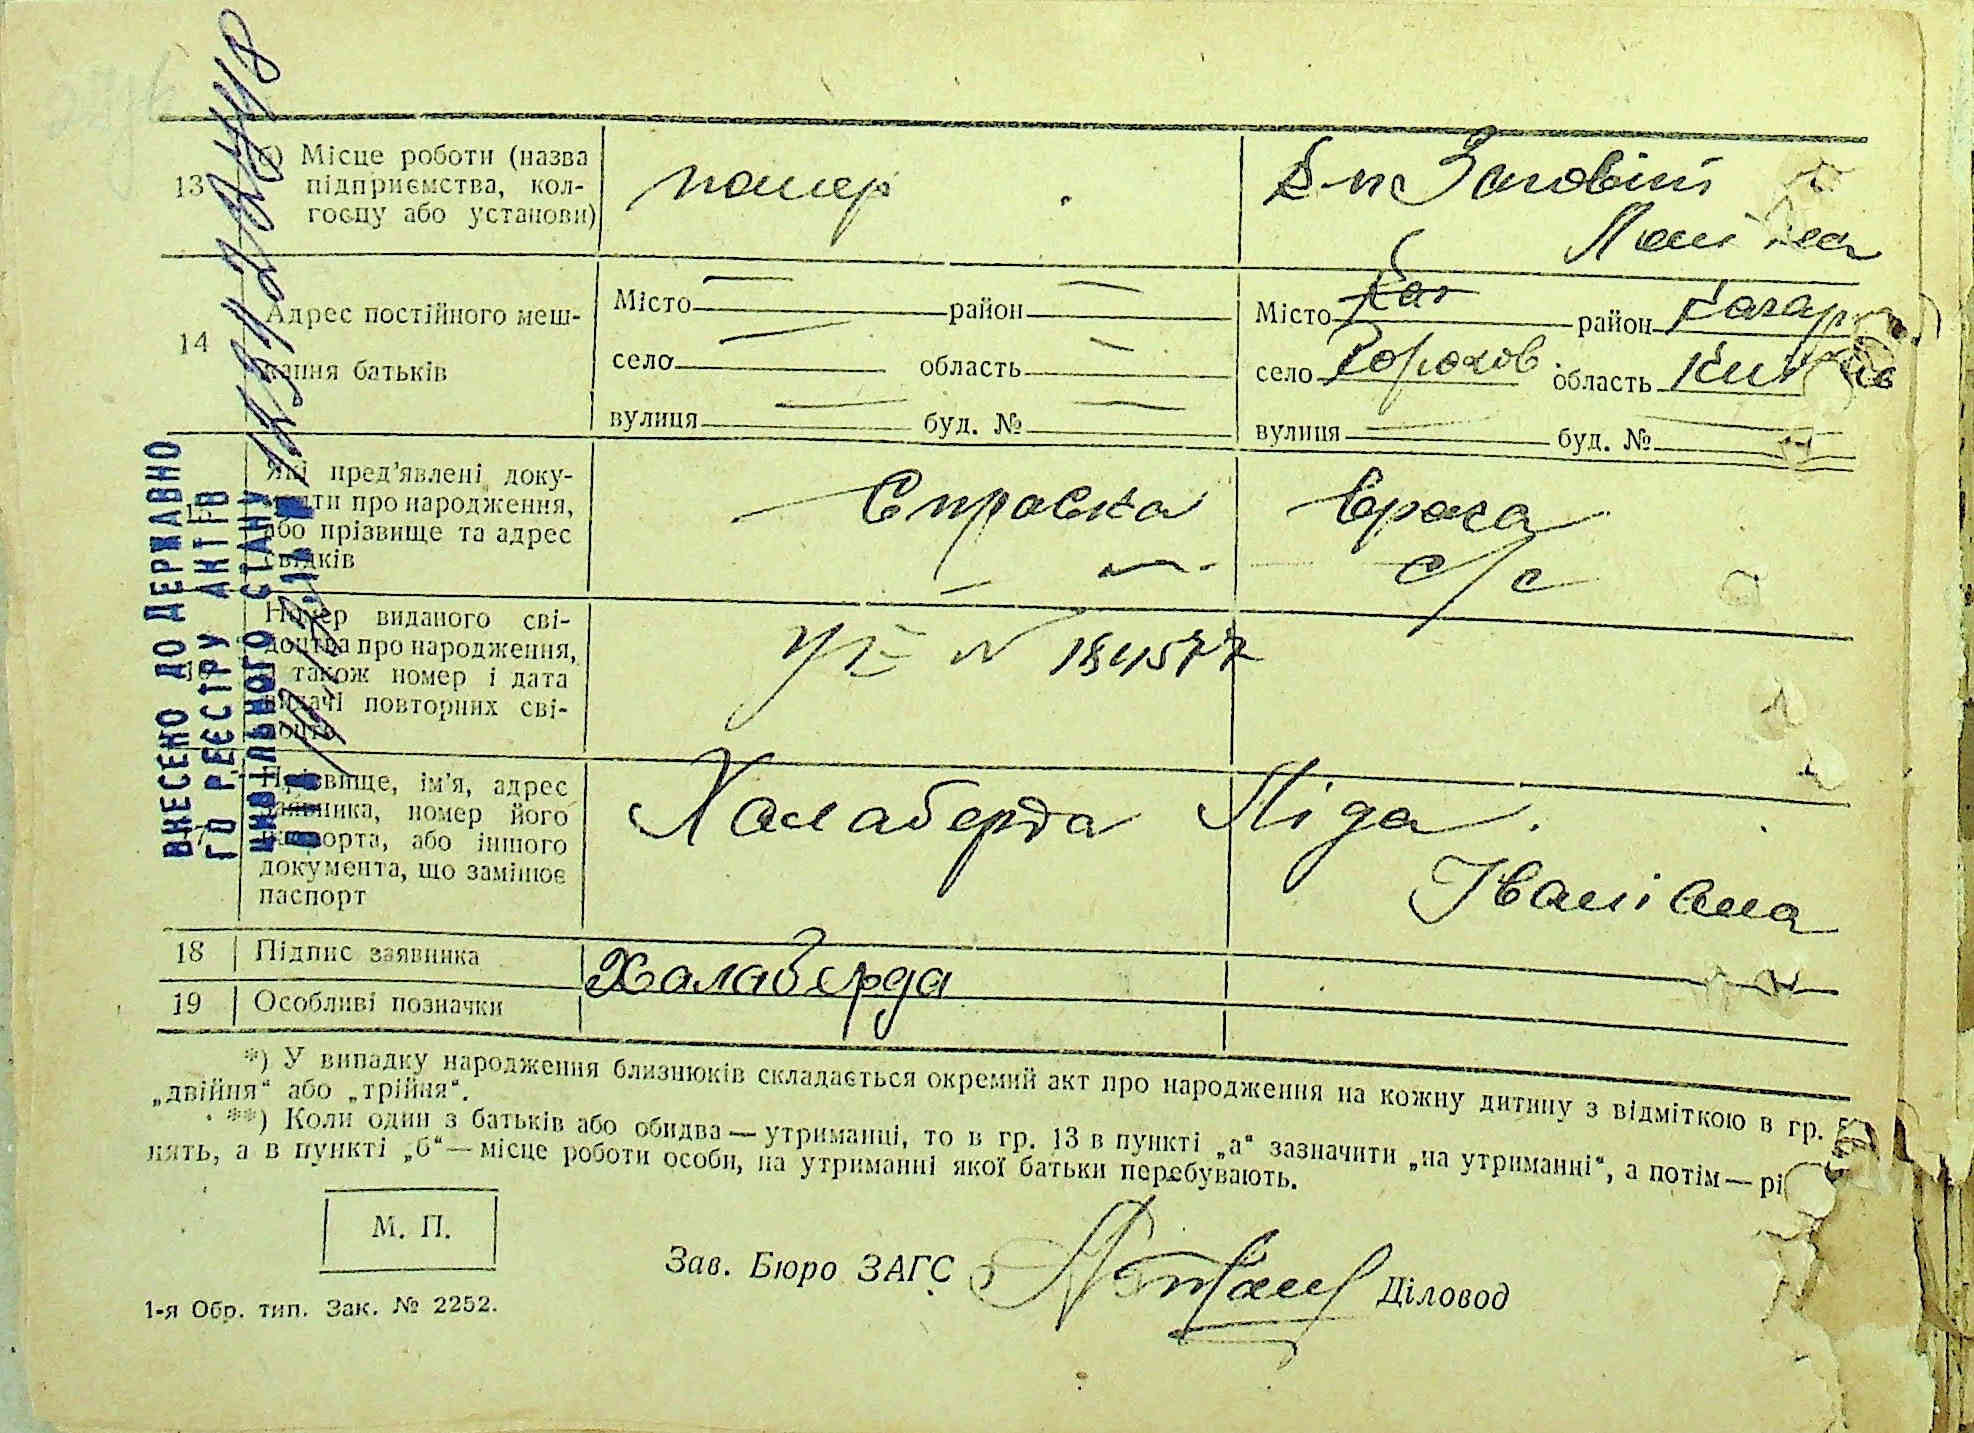 13 б) Місце роботи (назва
підприємства, кол-
госпу або установи)
помер
Заповіт
14 Адрес постійного меш-
кання батьків
Місто район
село область
вулиця буд. №
Місто район Кагар
село Горохов область Київ
вулиця буд. №
15 Які пред'явлені доку-
менти про народження,
або прізвище та адрес
свідків
Справка
с/с
16 Номер виданого сві-
доцтва про народження,
а також номер і дата
видачі повторних сві-
доцтв
№ 184577
17 Прізвище, ім'я, адрес
заявника, номер його
паспорта, або іншого
документа, що замінює
паспорт
Халаберда Ліда
Іванівна
18 Підпис заявника
Халаберда
19 Особливі позначки
*) У випадку народження близнюків складається окремий акт про народження на кожну дитину з відміткою в гр. 5
„двійня“ або „трійня“.
**) Коли один з батьків або обидва — утриманці, то в гр. 13 в пункті „а“ зазначити „на утриманні“, а потім — рі
нять, а в пункті „б“ — місце роботи особи, на утриманні якої батьки перебувають.
М. П.
Зав. Бюро ЗАГС
Діловод
1-я Обр. тип. Зак. № 2252.
ВНЕСЕНО ДО ДЕРЖАВНО
ГО РЕЄСТРУ АКТІВ
ЦИВІЛЬНОГО СТАНУ